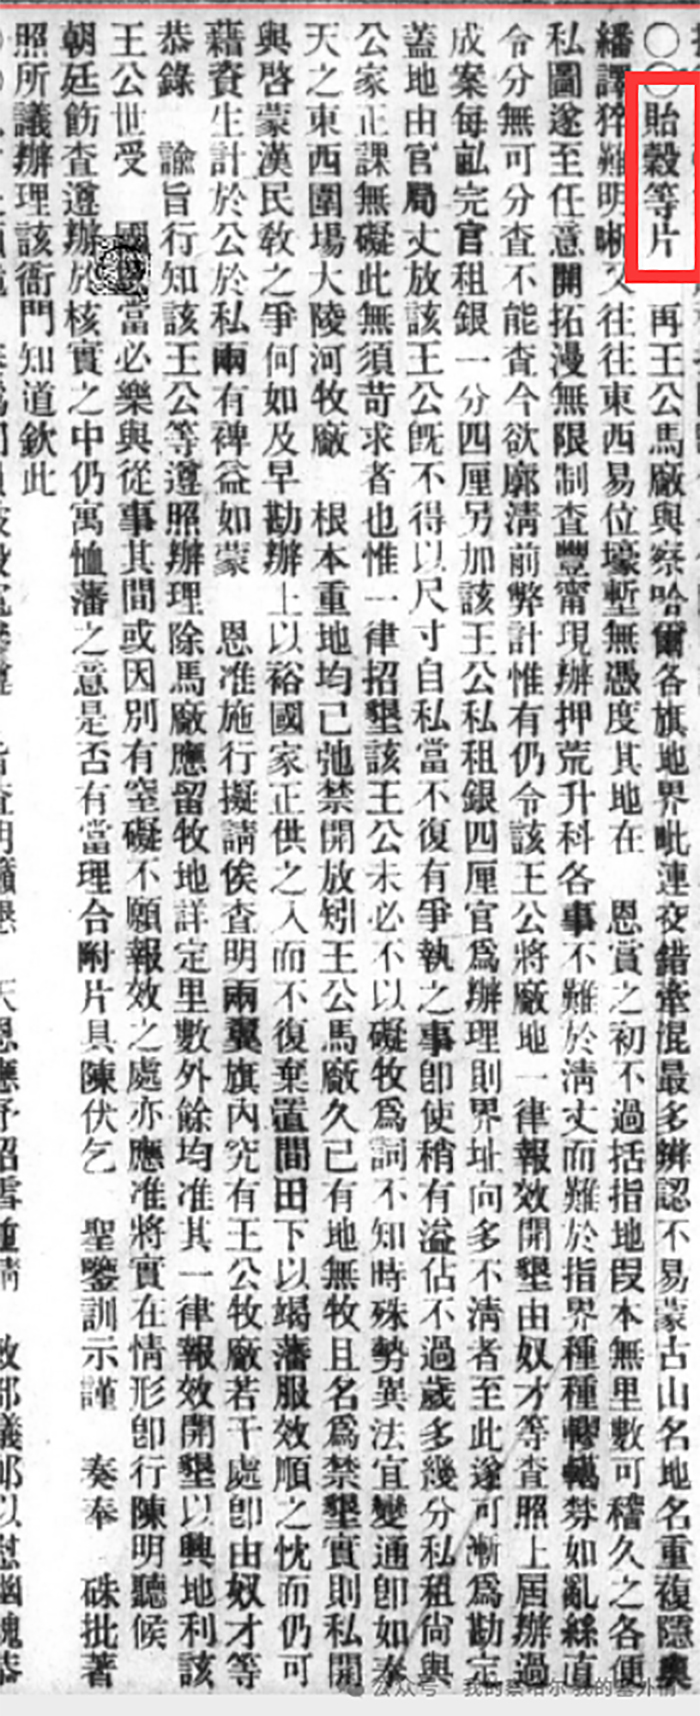 ○○貽穀等片 再王公馬廠與察哈爾各旗地界毗連交錯牽混最多辨認不易蒙古山名地名重複隱奧
繙譯猝難明晰又往往東西易位壕塹無憑度其地在 恩賞之初不過括指地段本無里數可稽久之各便
私圖遂至任意開拓漫無限制查豐甯現辦押荒升科各事不難於清丈而難於指界種種轇轕棼如亂絲直
令分無可分查不能查今欲廓清前弊計惟有仍令該王公將廠地一律報效開墾由奴才等查照上屆辦過
成案每畝完官租銀一分四厘另加該王公私租銀四厘官爲辦理則界址向多不清者至此遂可漸爲勘定
蓋地由官局丈放該王公既不得以尺寸自私當不復有爭執之事卽使稍有溢佔不過歲多幾分私租尙與
公家正課無礙此無須苛求者也惟一律招墾該王公未必不以礙牧爲詞不知時殊勢異法宜變通卽如奉
天之東西圍場大陵河牧廠 根本重地均已弛禁開放矧王公馬廠久已有地無牧且名爲禁墾實則私開
與啓蒙漢民敎之爭何如及早勘辦上以裕國家正供之入而不復棄置間田下以竭藩服效順之忱而仍可
藉資生計於公於私兩有裨益如蒙 恩准施行擬請俟查明兩翼旗內究有王公牧廠若干處卽由奴才等
恭錄 諭旨行知該王公等遵照辦理除馬廠應留牧地詳定里數外餘均准其一律報效開墾以興地利該
王公世受 國 當必樂與從事其間或因別有窒礙不願報效之處亦應准將實在情形卽行陳明聽候
朝廷飭查遵辦於核實之中仍寓恤藩之意是否有當理合附片具陳伏乞 聖鑒訓示謹 奏奉 硃批著
照所議辦理該衙門知道欽此
公众号 我的察哈尔我的塞外情